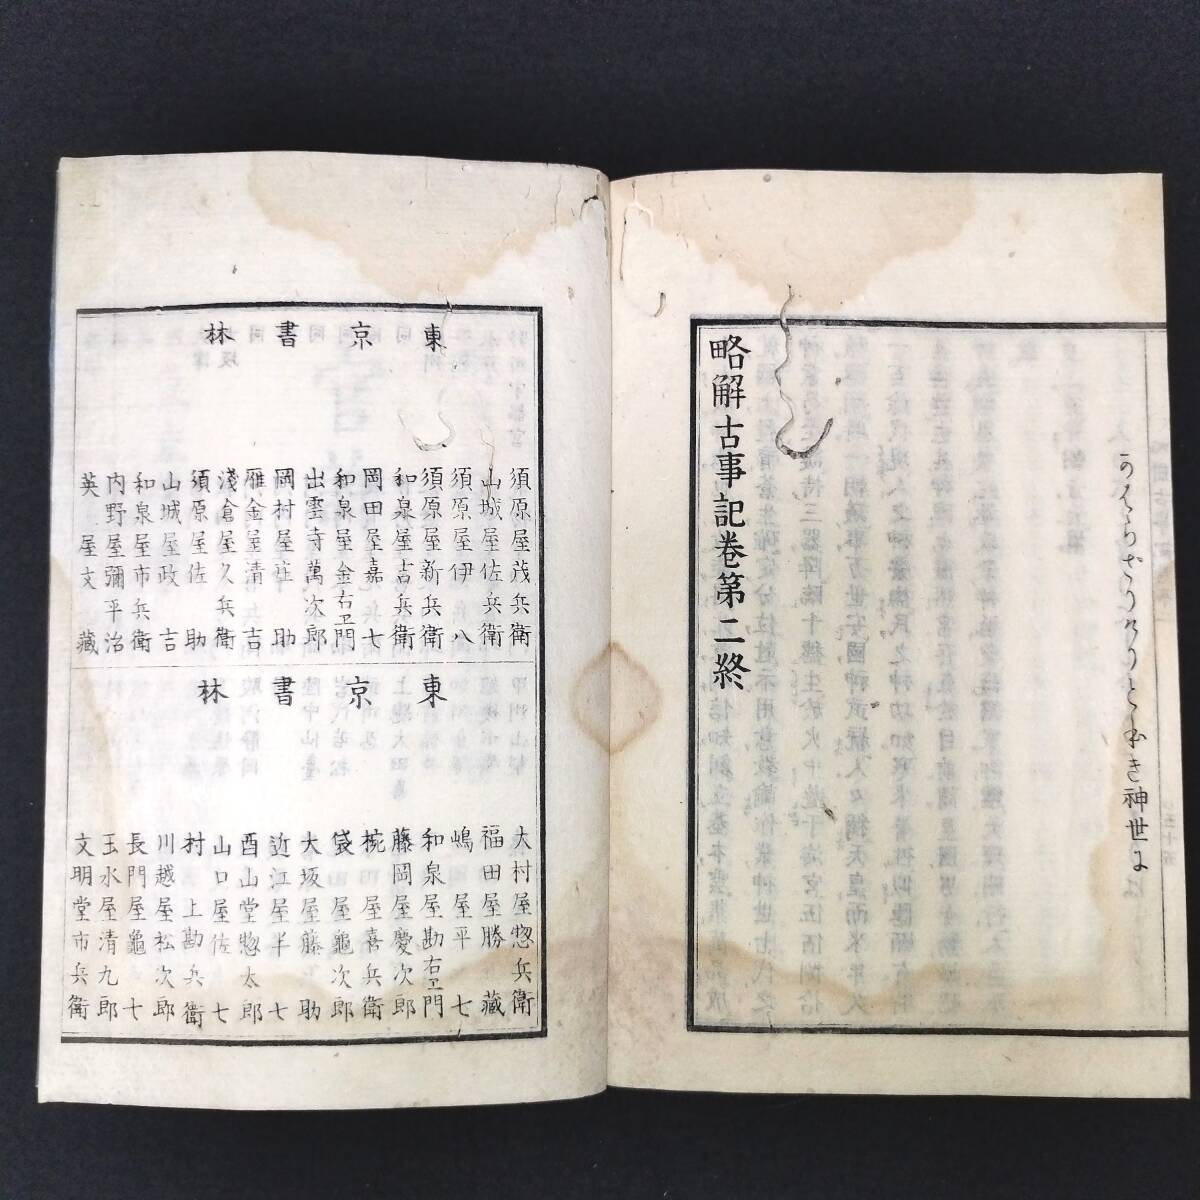 神世に
略解古事記卷第二終
東京書林
須原屋茂兵衛
山城屋佐兵衛
須原屋伊八
須原屋新兵衛
和泉屋吉兵衛
岡田屋嘉七
和泉屋金右ヱ門
出雲寺萬次郎
岡村屋庄助
雁金屋清吉
淺倉屋久兵衛
須原屋佐助
山城屋政吉
和泉屋市兵衛
内野屋彌平治
英屋文藏
東京書林
大村屋惣兵衛
福田屋勝藏
嶋屋平七
和泉屋勘右ヱ門
藤岡屋慶次郎
椀屋喜兵衛
袋屋龜次郎
大坂屋藤助
近江屋半七
酉山堂惣太郎
山口屋佐七
村上勘兵衛
川越屋松次郎
長門屋龜十
玉水屋清九郎
文明堂市兵衛